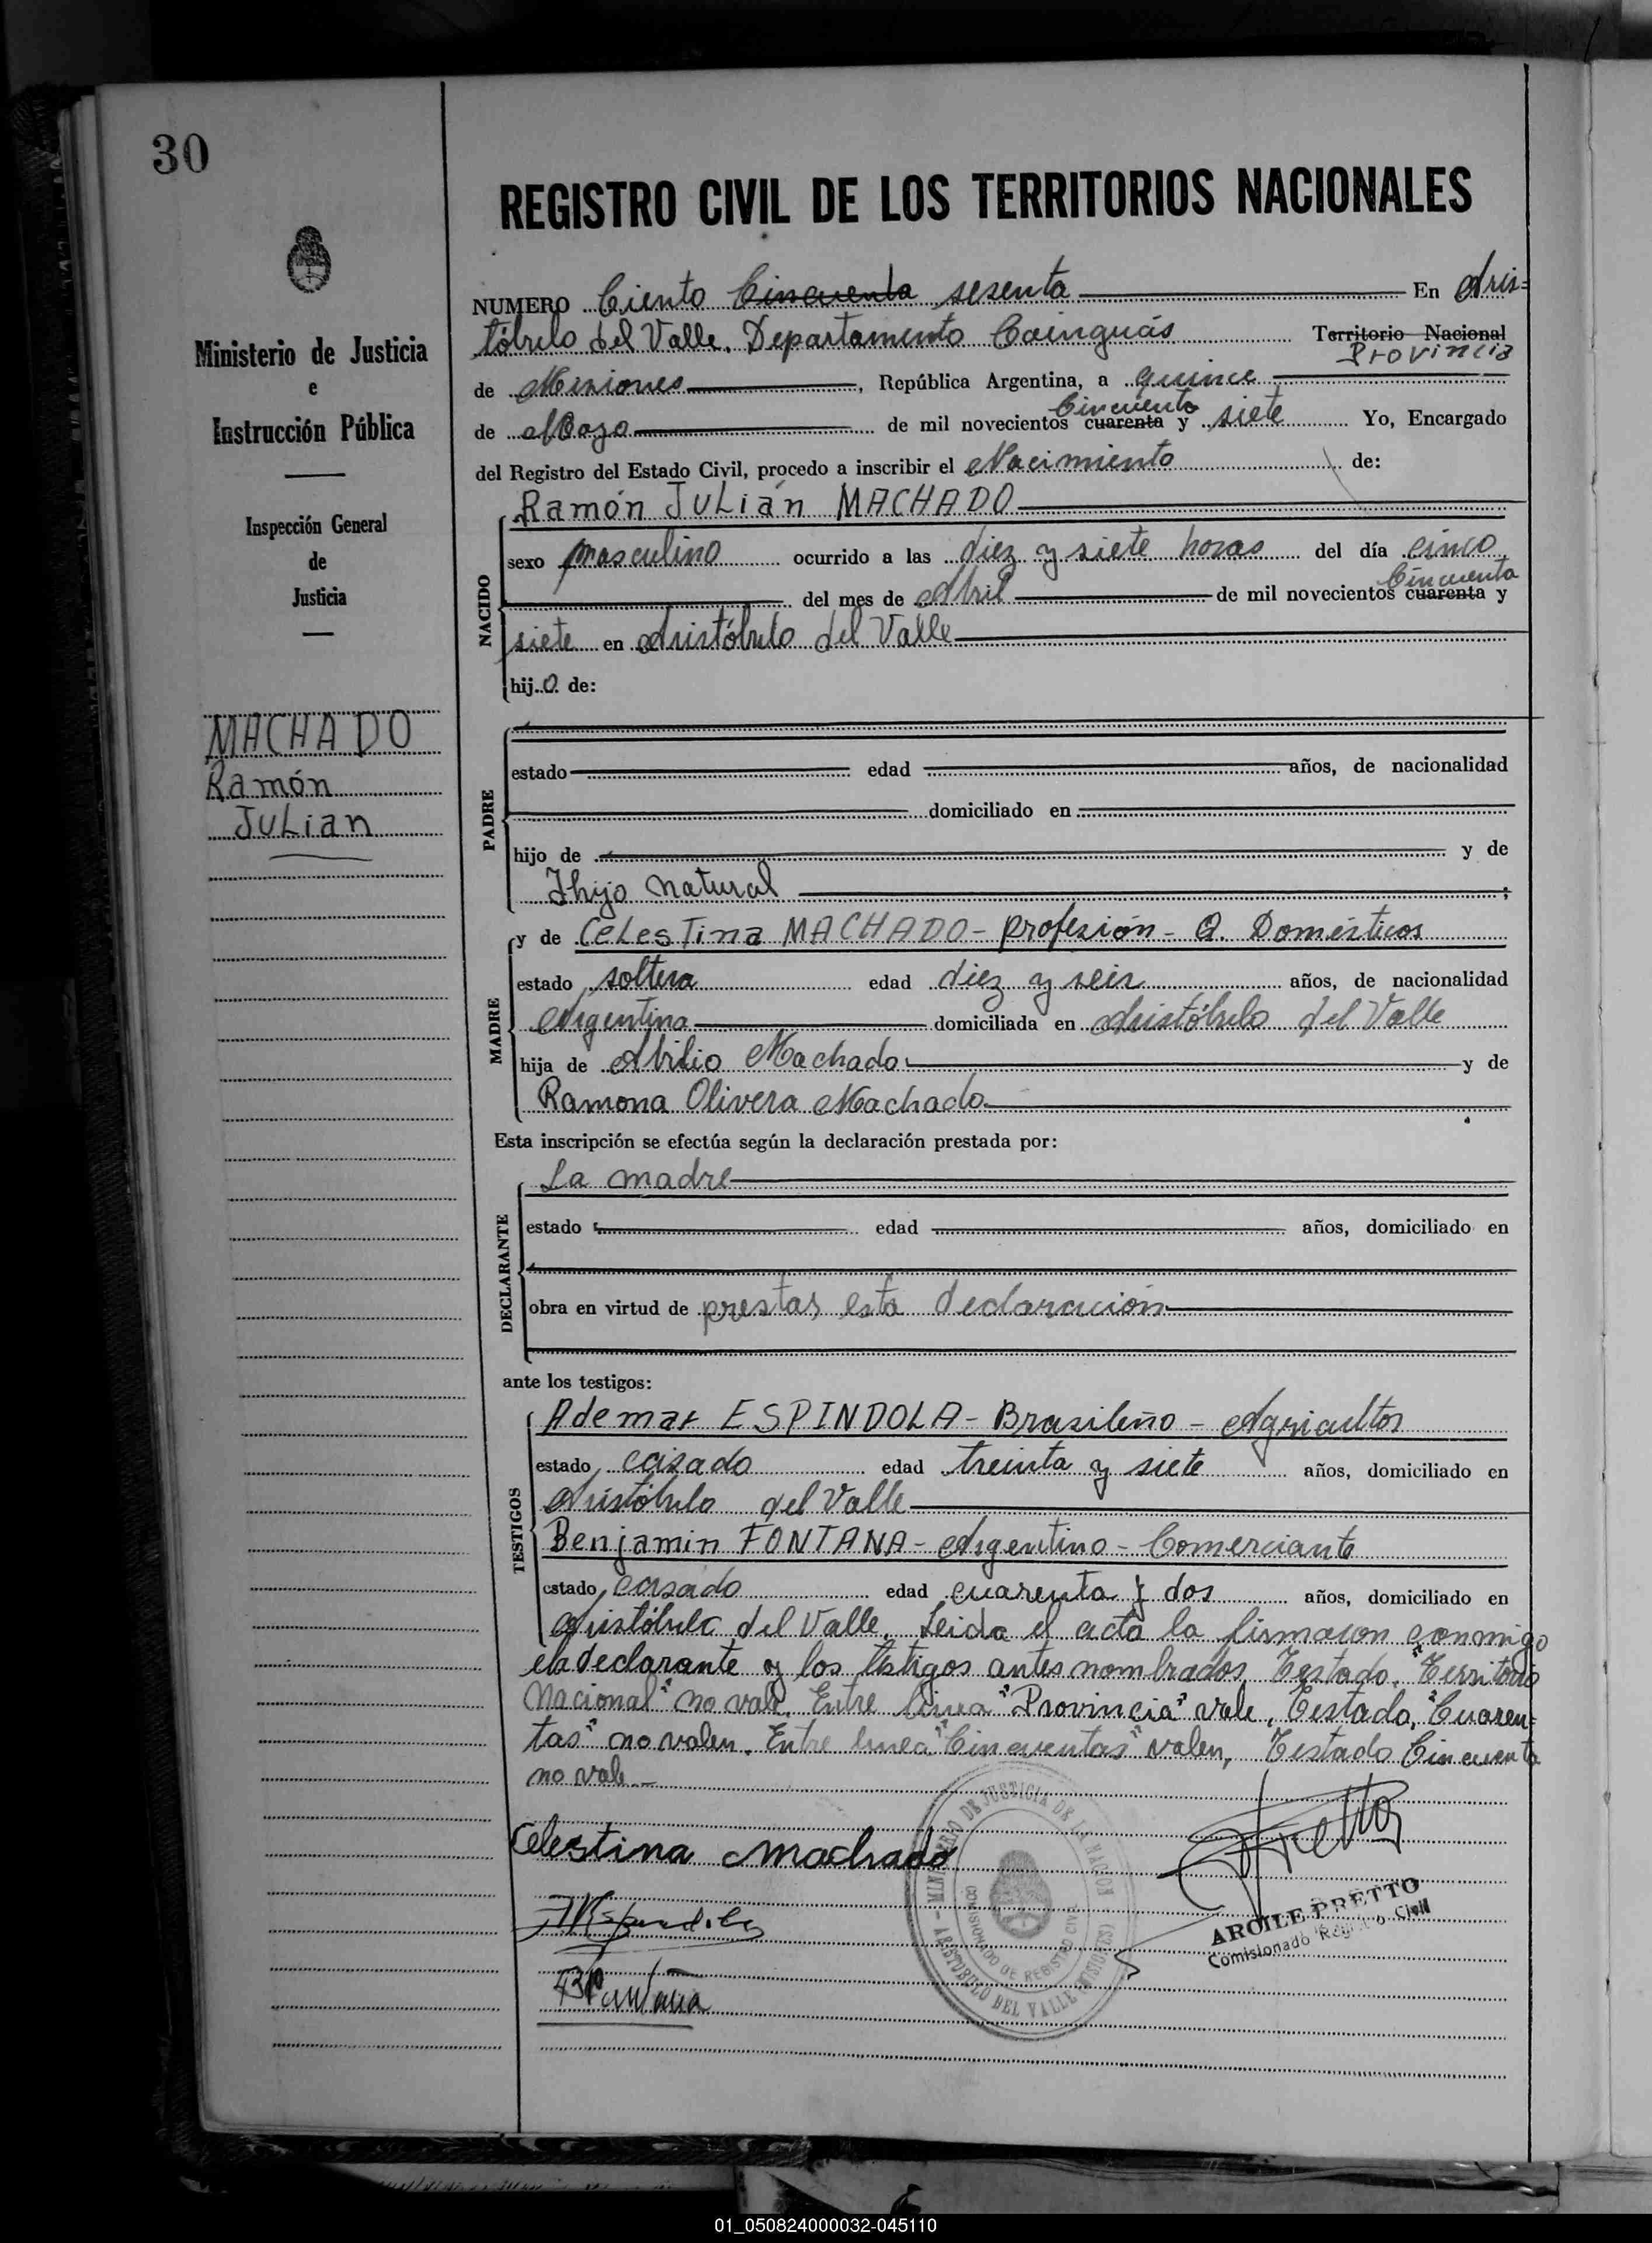 30
Ministerio de Justicia
e
Instrucción Pública
Inspección General
de
Justicia
MACHADO
Ramón
Julian
REGISTRO CIVIL DE LOS TERRITORIOS NACIONALES
NUMERO Ciento Cincuenta sesenta En Aris=
tóbulo del Valle. Departamento Cainguás Territorio Nacional
Provincia
de Misiones, República Argentina, a quince
Cincuenta
de Mayo de mil novecientos cuarenta y siete Yo, Encargado
del Registro del Estado Civil, procedo a inscribir el Nacimiento de:
NACIDO
Ramón Julián MACHADO
sexo masculino ocurrido a las diez y siete horas del día cinco
Cincuenta
del mes de Abril de mil novecientos cuarenta y
siete en Aristóbulo del Valle
hijo de:
PADRE
estado edad años, de nacionalidad
domiciliado en
hijo de y de
Ihijo natural ;
MADRE
y de Celestina MACHADO - profesión - Q. Domésticos
estado soltera edad diez y seis años, de nacionalidad
Argentina domiciliada en Aristóbulo del Valle
hija de Abilio Machado y de
Ramona Olivera Machado
Esta inscripción se efectúa según la declaración prestada por:
DECLARANTE
La madre
estado edad años, domiciliado en
obra en virtud de prestar esta declaración
ante los testigos:
TESTIGOS
Ademar ESPINDOLA - Brasileño - Agricultor
estado casado edad treinta y siete años, domiciliado en
Aristóbulo del Valle
Benjamin FONTANA - Argentino - Comerciante
estado casado edad cuarenta y dos años, domiciliado en
Aristóbulo del Valle. Leida el acta la firmaron conmigo
la declarante y los testigos antes nombrados. Testado, "Territorio
Nacional" no vale. Entre linea "Provincia" vale, Testado, "Cuaren=
tas" no valen. Entre linea "Cincuentas" valen, Testado Cincuenta
no vale.-
Celestina Machado
MINISTERIO DE JUSTICIA DE LA NACION
COMISIONADO DE REGISTRO CIVIL
ARISTOBULO DEL VALLE (MISIONES)
ARGILE PRETTO
Comisionado Registro Civil
01_050824000032-045110